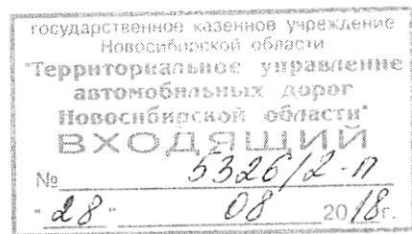 государственное казенное учреждение
Новосибирской области
"Территориальное управление
автомобильных дорог
Новосибирской области"
ВХОДЯЩИЙ
№ 5326/2-п
"28" 08 2018г.